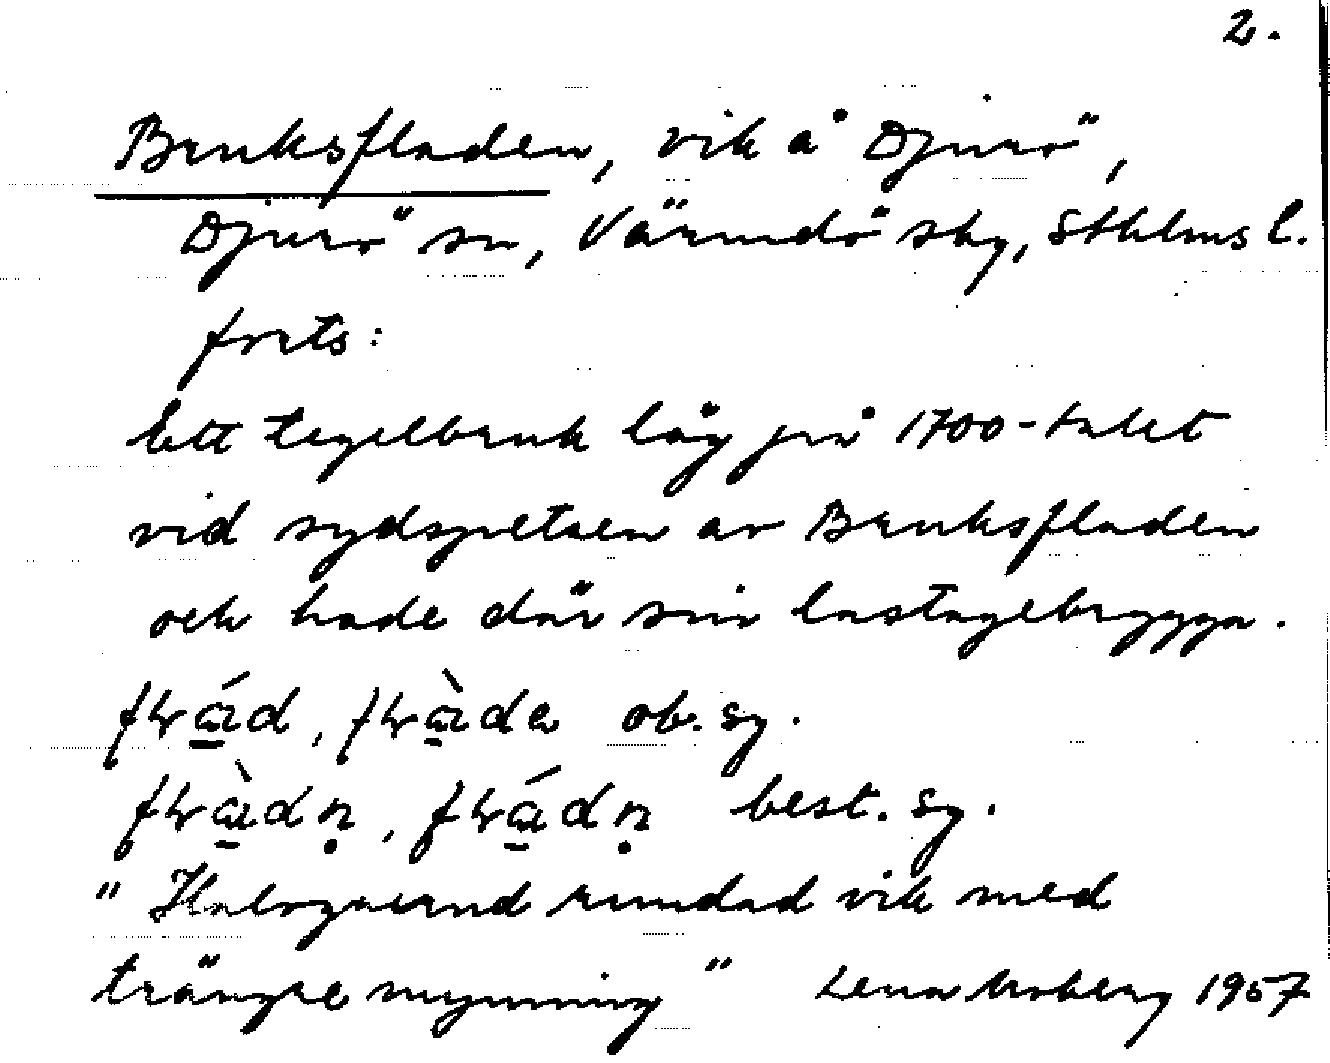 2.
Bruksfladen, vik å Djurö,
Djurö sn, Värmdö skg, Sthlms l.
forts:
Ett tegelbruk låg på 1700-talet
vid sydspetsen av Bruksfladen
och hade där sin lastagebrygga.
ob. sg.
best. sg.
" rundad vik med
trängre mynning" Lena Moberg 1957